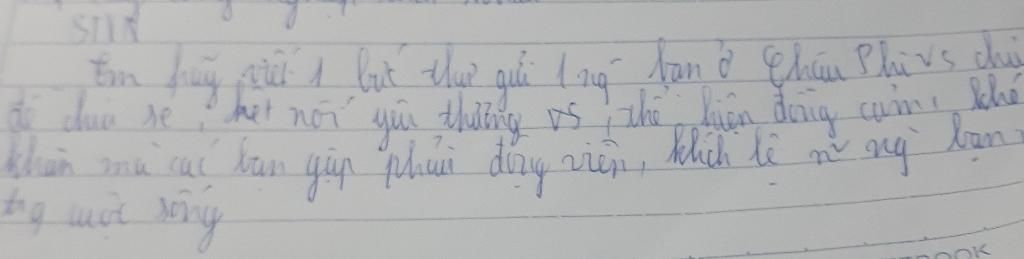 STIR
Em hãy viết 1 bức thư gửi 1 ng bạn ở Châu Phi vs chủ
đề chia sẻ, kết nối yêu thương vs, thể hiện đồng cảm, khó
khăn mà các bạn gặp phải động viên, khích lệ ng bạn
tng cuộc sống
OOK